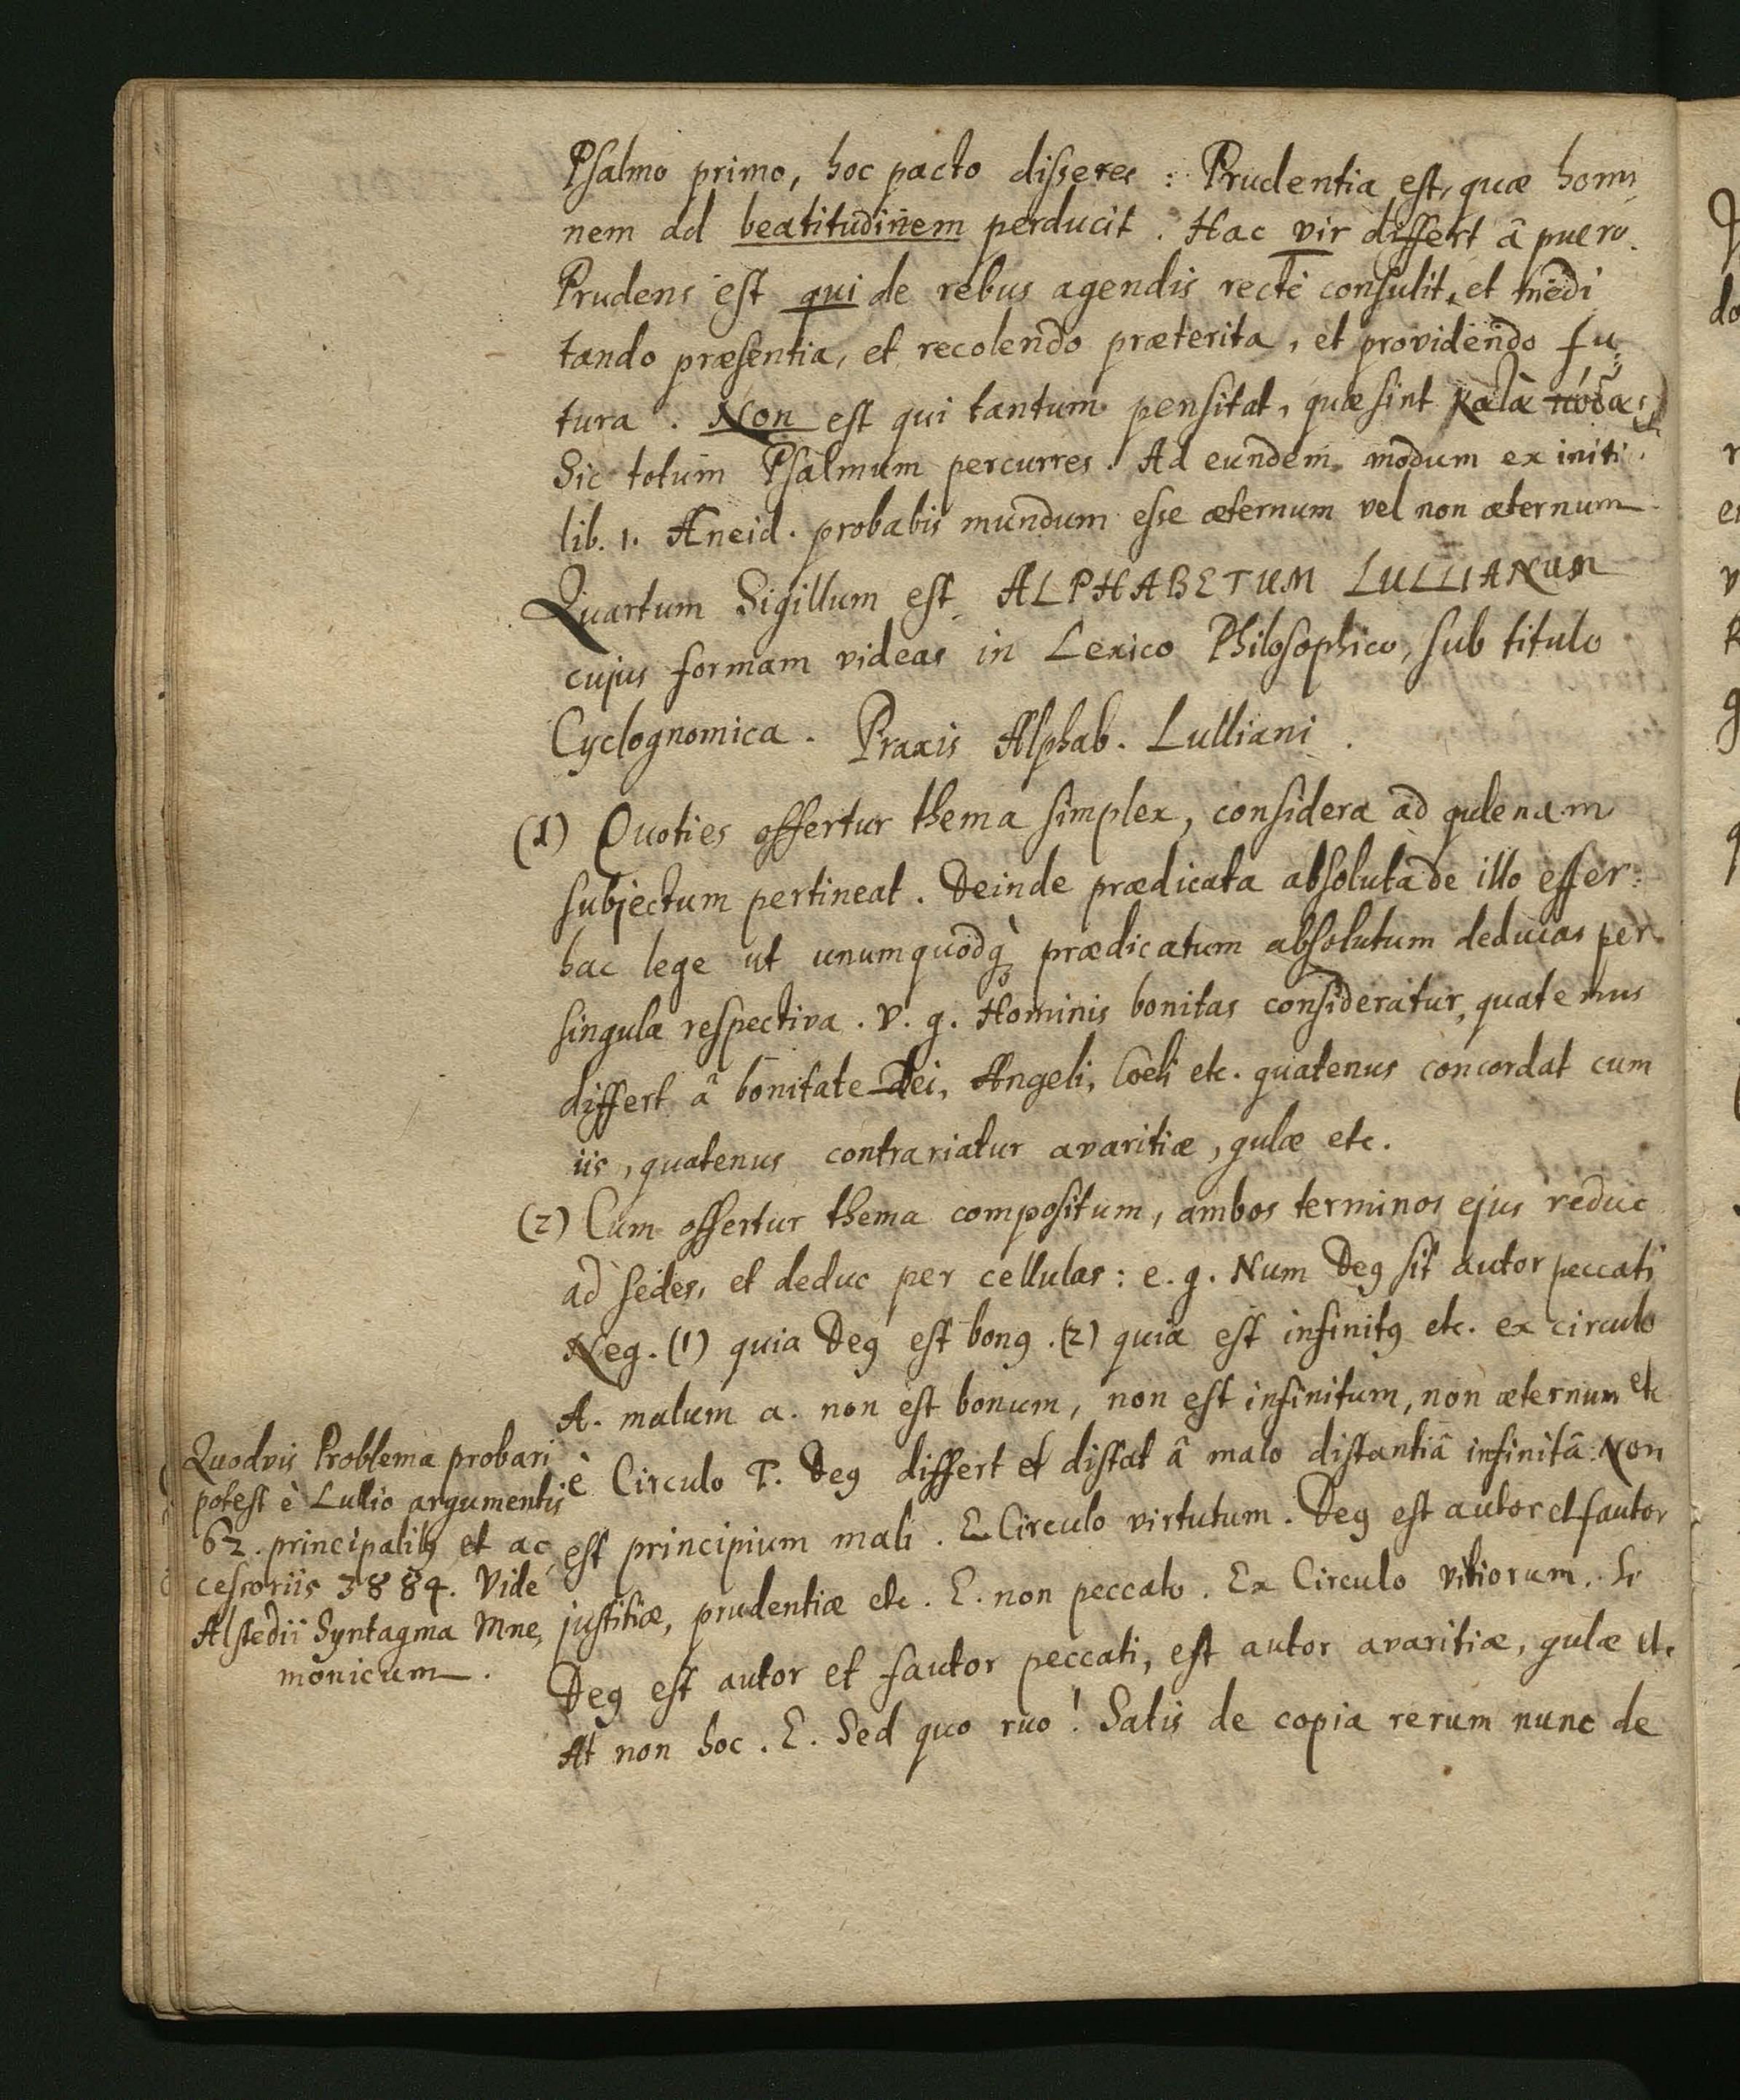 Psalmo primo, hoc pacto disseres : Prudentia est, quæ homi
nem ad beatitudinem perducit . Hac vir differt â puero.
Prudens est qui de rebus agendis recte consulit, et medi
tando præsentia, et recolendo præterita, et providendo fu:
tura . Non est qui tantum pensitat, quæ sint κατὰ πόδας
Sic totum Psalmum percurres . Ad eundem modum ex initi
lib. 1. Æneid. probabis mundum esse æternum vel non æternum
Quartum Sigillum est ALPHABETUM LULLIANUM
cujus formam videas in Lexico Philosophico, sub titulo
Cyclognomica . Praxis Alphab. Lulliani .
(1) Quoties offertur thema simplex, considera ad
subjectum pertineat . Deinde prædicata absoluta de illo effer:
hac lege ut unumquodq̀ꝫ prædicatum absolutum deducas per
singula respectiva . V. g. Hominis bonitas consideratur, quatenus
differt â bonitate Dei, Angeli, Cœli etc. quatenus concordat cum
iis , quatenus contrariatur avaritiæ , gulæ etc.
(2) Cum offertur thema compositum, ambos terminos ejus reduc
ad sedes, et deduc per cellulas : e. g. Num Deꝯ sit autor peccati
Neg. (1) quia Deꝯ est bonꝯ . (2) quia est infinitꝯ etc. ex circulo
A. malum a. non est bonum, non est infinitum, non æternum etc
è Circulo T. Deꝯ differt et distat â malo distantiâ infinitâ : Non
est principium mali . E Circulo virtutum . Deꝯ est autor et fautor
justitiæ, prudentiæ etc. E. non peccato . Ex Circulo vitiorum. Si
Deꝯ est autor et fautor peccati, est autor avaritiæ, gulæ etc
At non hoc . E. Sed quo ruo ! Satis de copia rerum nunc de
Quodvis Problema probari
potest è Lullio argumentis
62. principalibꝯ et ac
cessoriis 3884. Vide
Alstedii Syntagma Mne,
monicum .